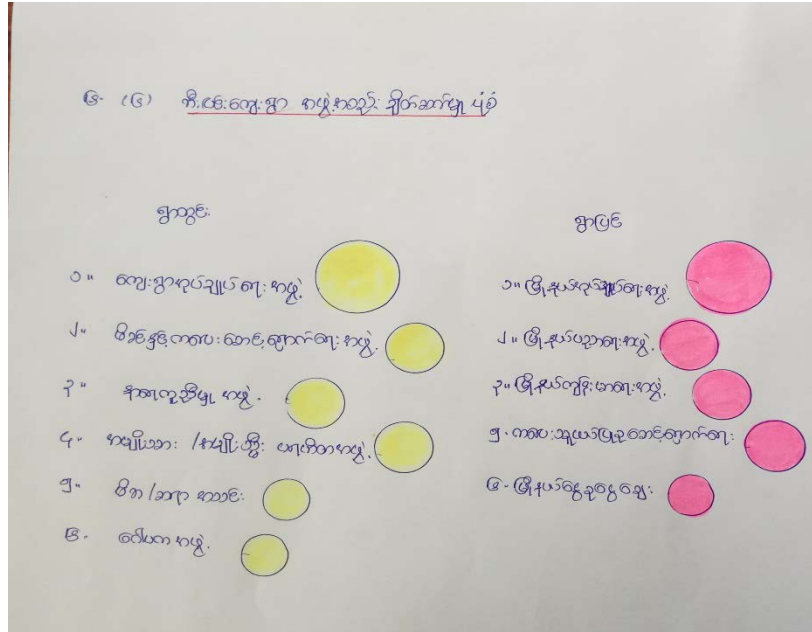 ၆. (၆) ကျေးရွာ အဖွဲ့အစည်း ချိတ်ဆက်မှု ပုံစံ
ရွာတွင်း
၁။ ကျေးရွာအုပ်ချုပ်ရေးအဖွဲ့
၂။ မိခင်နှင့်ကလေးစောင့်ရှောက်ရေးအဖွဲ့
၃။ နာရေးကူညီမှု အဖွဲ့
၄. အမျိုးသား / အမျိုးသ္မီး ပရဟိတအဖွဲ့
၅. မိဘ / ဆရာ အသင်း
၆. ဂေါပက အဖွဲ့
ရွာပြင်
၁။ မြို့နယ်အုပ်ချုပ်ရေးအဖွဲ့
၂။ မြို့နယ်ပညာရေးအဖွဲ့
၃။ မြို့နယ်ကျန်းမာရေးအဖွဲ့
၅. ကလေးသူငယ်ပြုစုစောင့်ရှောက်ရေး
၆. မြို့နယ်ငွေစုငွေချေး